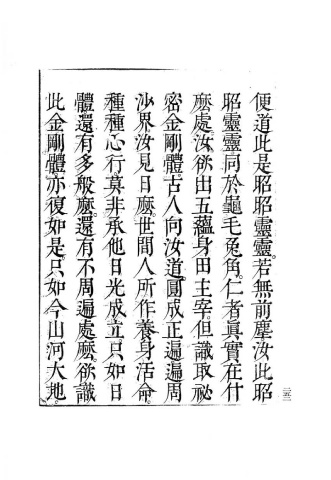 便道此是昭昭靈靈。若無前塵汝此昭
昭靈靈同於龜毛兔角。仁者眞實在什
麽處。汝欲出五蘊身田主宰但識取祕
密金剛體古人向汝道圓成正遍遍周
沙界汝見日麽。世間人所作養身活命
種種心行莫非承他日光成立。只如日
體還有多般麽。還有不周遍處麽。欲識
此金剛體亦復如是。只如今山河大地
二五二